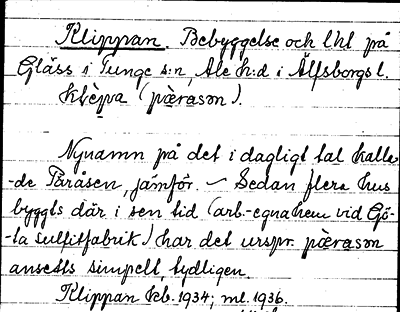 Klippan. Bebyggelse och lhl på
Gläss i Tunge s:n, Ale h:d i Älfsborgs l.
(pærasøn).
Nynamn på det i dagligt tal kalla-
-de Paråsen, jämför. – Sedan flera hus
byggts där i sen tid (arb.-egnahem vid Gö-
-ta sulfitfabrik) har det urspr. pærasøn
ansetts simpelt, tydligen.
Klippan kb. 1934; ml. 1936.